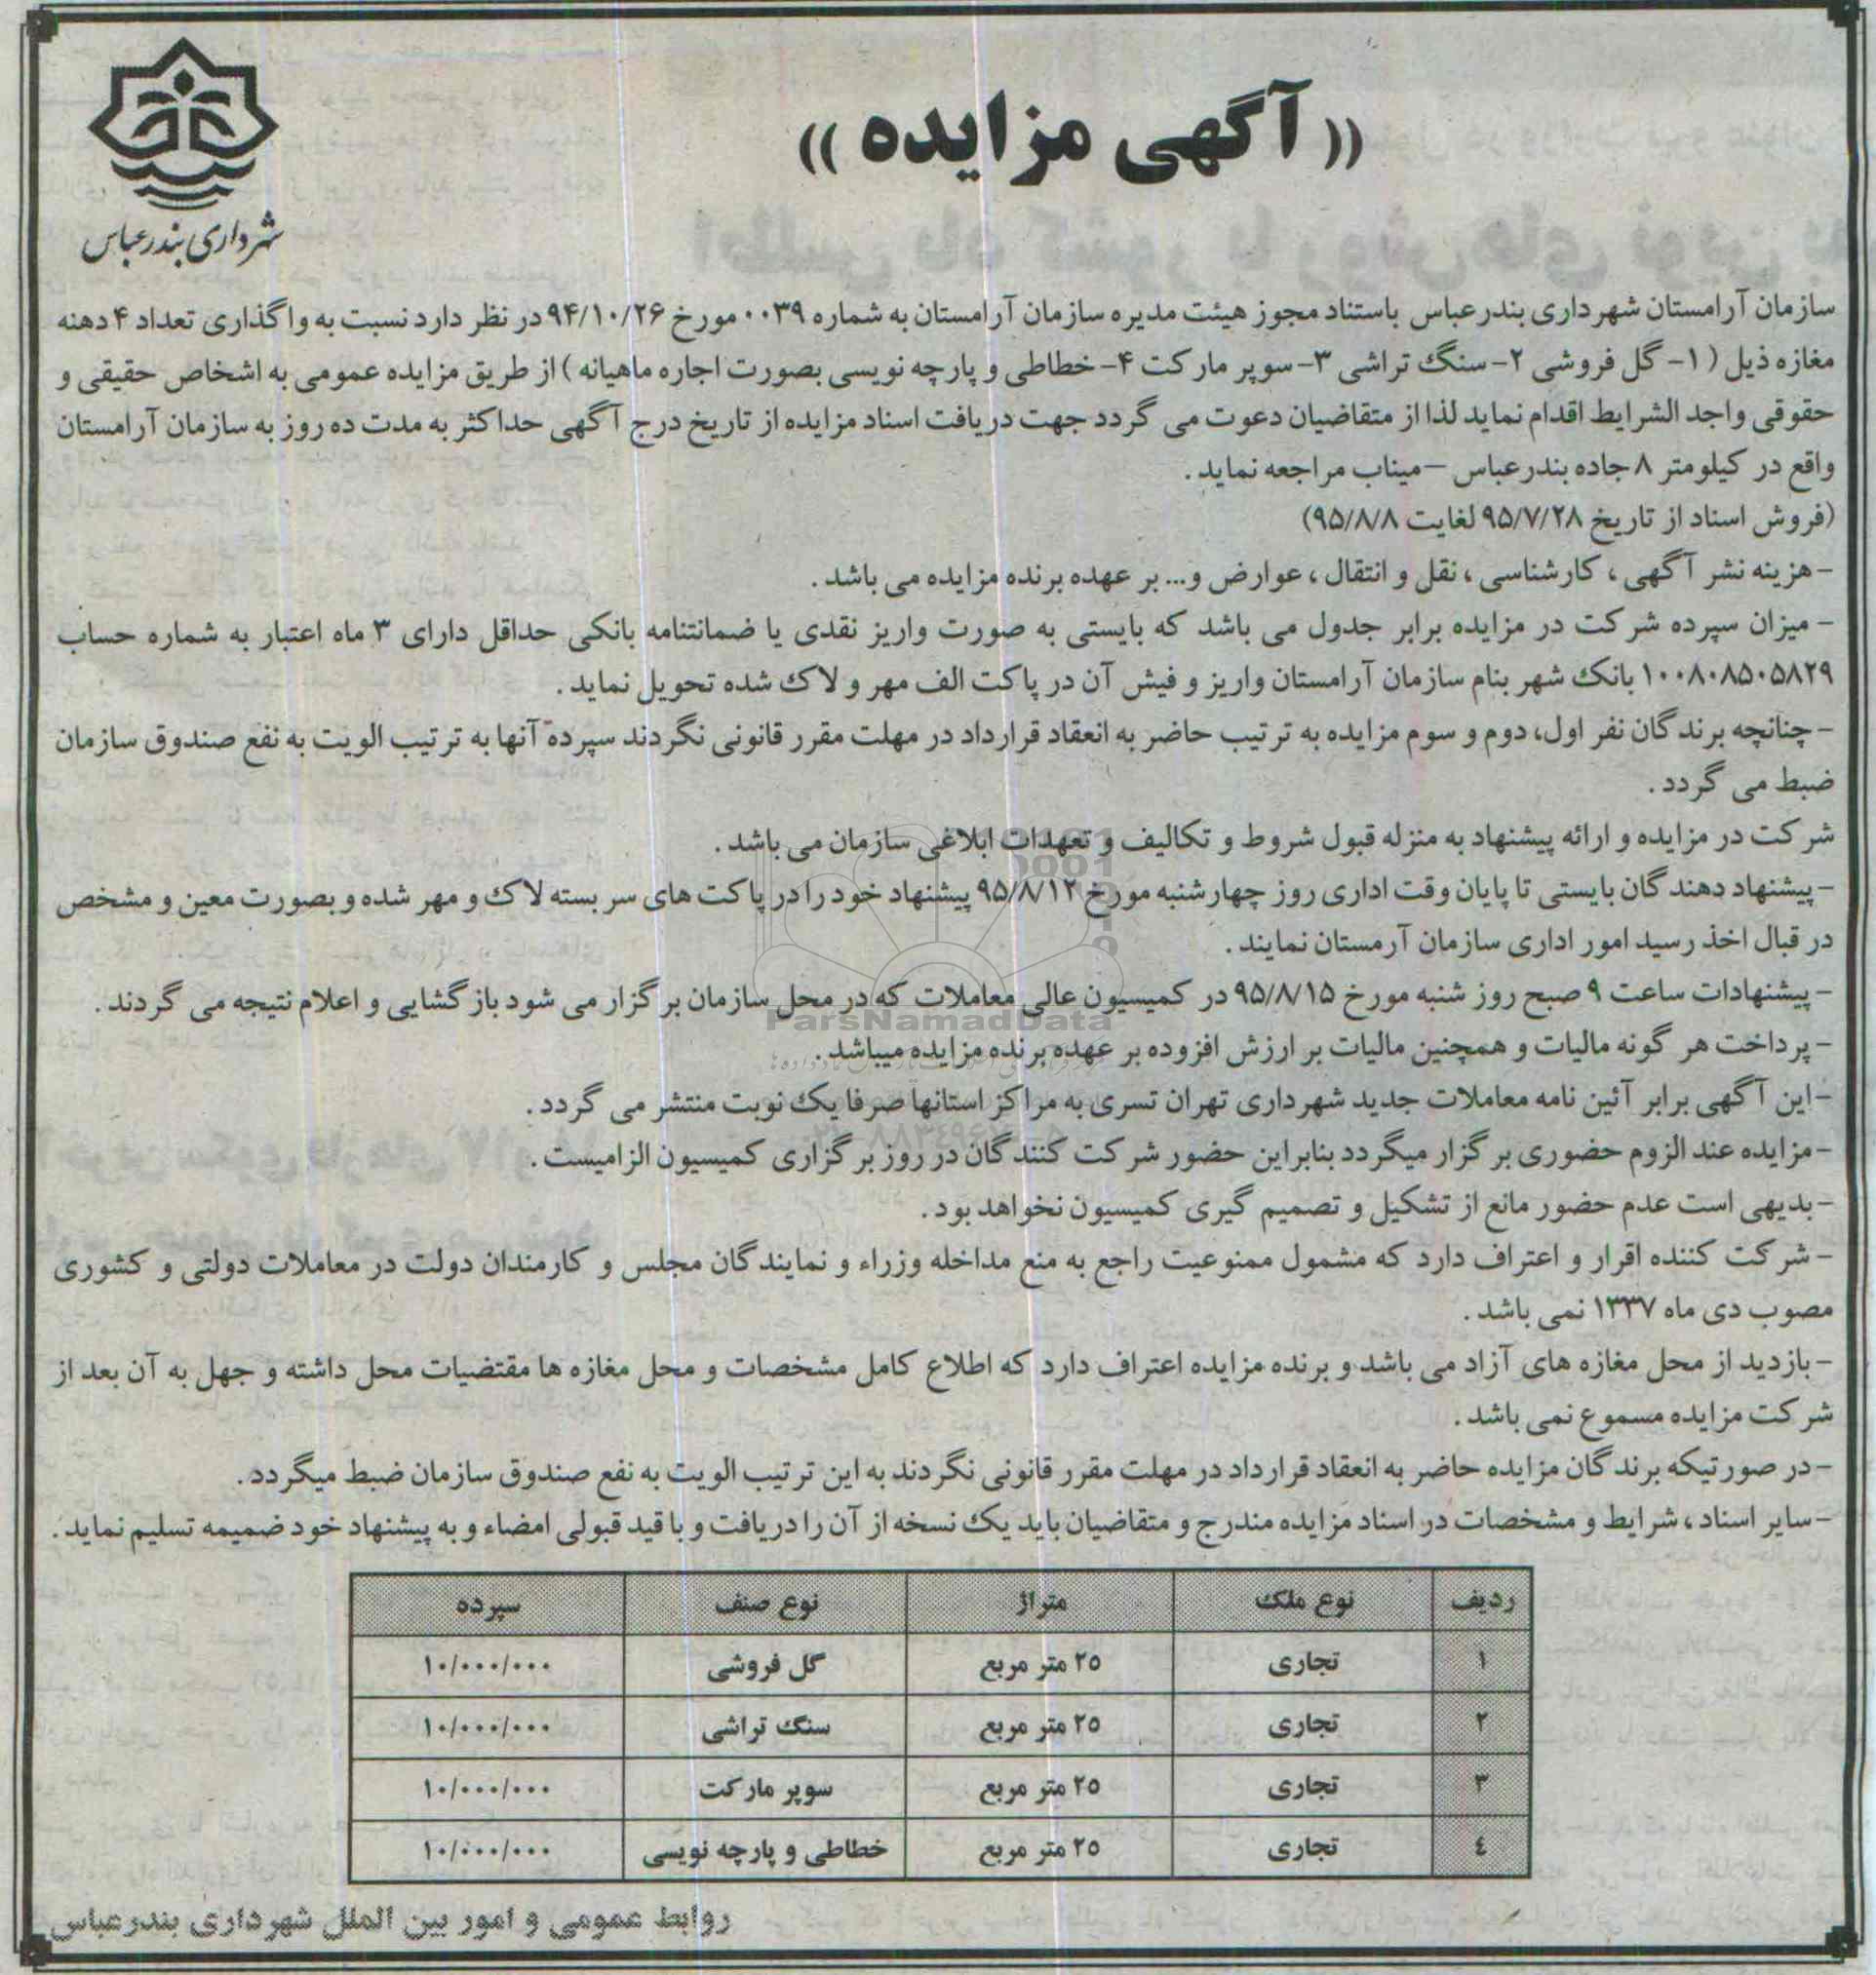 (( آگهی مزایده ))
شهرداری بندرعباس
سازمان آرامستان شهرداری بندرعباس باستناد مجوز هیئت مدیره سازمان آرامستان به شماره ۰۰۳۹ مورخ ۹۴/۱۰/۲۶ در نظر دارد نسبت به واگذاری تعداد ۴ دهنه
مغازه ذیل ( ۱- گل فروشی ۲- سنگ تراشی ۳- سوپر مارکت ۴- خطاطی و پارچه نویسی بصورت اجاره ماهیانه ) از طریق مزایده عمومی به اشخاص حقیقی و
حقوقی واجد الشرایط اقدام نماید لذا از متقاضیان دعوت می گردد جهت دریافت اسناد مزایده از تاریخ درج آگهی حداکثر به مدت ده روز به سازمان آرامستان
واقع در کیلومتر ۸ جاده بندرعباس – میناب مراجعه نماید .
(فروش اسناد از تاریخ ۹۵/۷/۲۸ لغایت ۹۵/۸/۸)
- هزینه نشر آگهی ، کارشناسی ، نقل و انتقال ، عوارض و... بر عهده برنده مزایده می باشد .
- میزان سپرده شرکت در مزایده برابر جدول می باشد که بایستی به صورت واریز نقدی یا ضمانتنامه بانکی حداقل دارای ۳ ماه اعتبار به شماره حساب
۱۰۰۸۰۸۵۰۵۸۲۹ بانک شهر بنام سازمان آرامستان واریز و فیش آن در پاکت الف مهر و لاک شده تحویل نماید .
- چنانچه برندگان نفر اول، دوم و سوم مزایده به ترتیب حاضر به انعقاد قرارداد در مهلت مقرر قانونی نگردند سپرده آنها به ترتیب الویت به نفع صندوق سازمان
ضبط می گردد .
شرکت در مزایده و ارائه پیشنهاد به منزله قبول شروط و تکالیف و تعهدات ابلاغی سازمان می باشد .
- پیشنهاد دهندگان بایستی تا پایان وقت اداری روز چهارشنبه مورخ ۹۵/۸/۱۲ پیشنهاد خود را در پاکت های سر بسته لاک و مهر شده و بصورت معین و مشخص
در قبال اخذ رسید امور اداری سازمان آرمستان نمایند .
- پیشنهادات ساعت ۹ صبح روز شنبه مورخ ۹۵/۸/۱۵ در کمیسیون عالی معاملات که در محل سازمان برگزار می شود بازگشایی و اعلام نتیجه می گردند .
ParsNamadData
- پرداخت هر گونه مالیات و همچنین مالیات بر ارزش افزوده بر عهده برنده مزایده میباشد .
- این آگهی برابر آئین نامه معاملات جدید شهرداری تهران تسری به مراکز استانها صرفا یک نوبت منتشر می گردد .
- مزایده عند الزوم حضوری برگزار میگردد بنابراین حضور شرکت کنندگان در روز برگزاری کمیسیون الزامیست .
- بدیهی است عدم حضور مانع از تشکیل و تصمیم گیری کمیسیون نخواهد بود .
- شرکت کننده اقرار و اعتراف دارد که مشمول ممنوعیت راجع به منع مداخله وزراء و نمایندگان مجلس و کارمندان دولت در معاملات دولتی و کشوری
مصوب دی ماه ۱۳۳۷ نمی باشد .
- بازدید از محل مغازه های آزاد می باشد و برنده مزایده اعتراف دارد که اطلاع کامل مشخصات و محل مغازه ها مقتضیات محل داشته و جهل به آن بعد از
شرکت مزایده مسموع نمی باشد .
- در صورتیکه برندگان مزایده حاضر به انعقاد قرارداد در مهلت مقرر قانونی نگردند به این ترتیب الویت به نفع صندوق سازمان ضبط میگردد .
- سایر اسناد ، شرایط و مشخصات در اسناد مزایده مندرج و متقاضیان باید یک نسخه از آن را دریافت و با قید قبولی امضاء و به پیشنهاد خود ضمیمه تسلیم نماید .
ردیف نوع ملک متراژ نوع صنف سپرده
۱ تجاری ۲۵ متر مربع گل فروشی ۱۰/۰۰۰/۰۰۰
۲ تجاری ۲۵ متر مربع سنگ تراشی ۱۰/۰۰۰/۰۰۰
۳ تجاری ۲۵ متر مربع سوپر مارکت ۱۰/۰۰۰/۰۰۰
٤ تجاری ۲۵ متر مربع خطاطی و پارچه نویسی ۱۰/۰۰۰/۰۰۰
روابط عمومی و امور بین الملل شهرداری بندرعباس